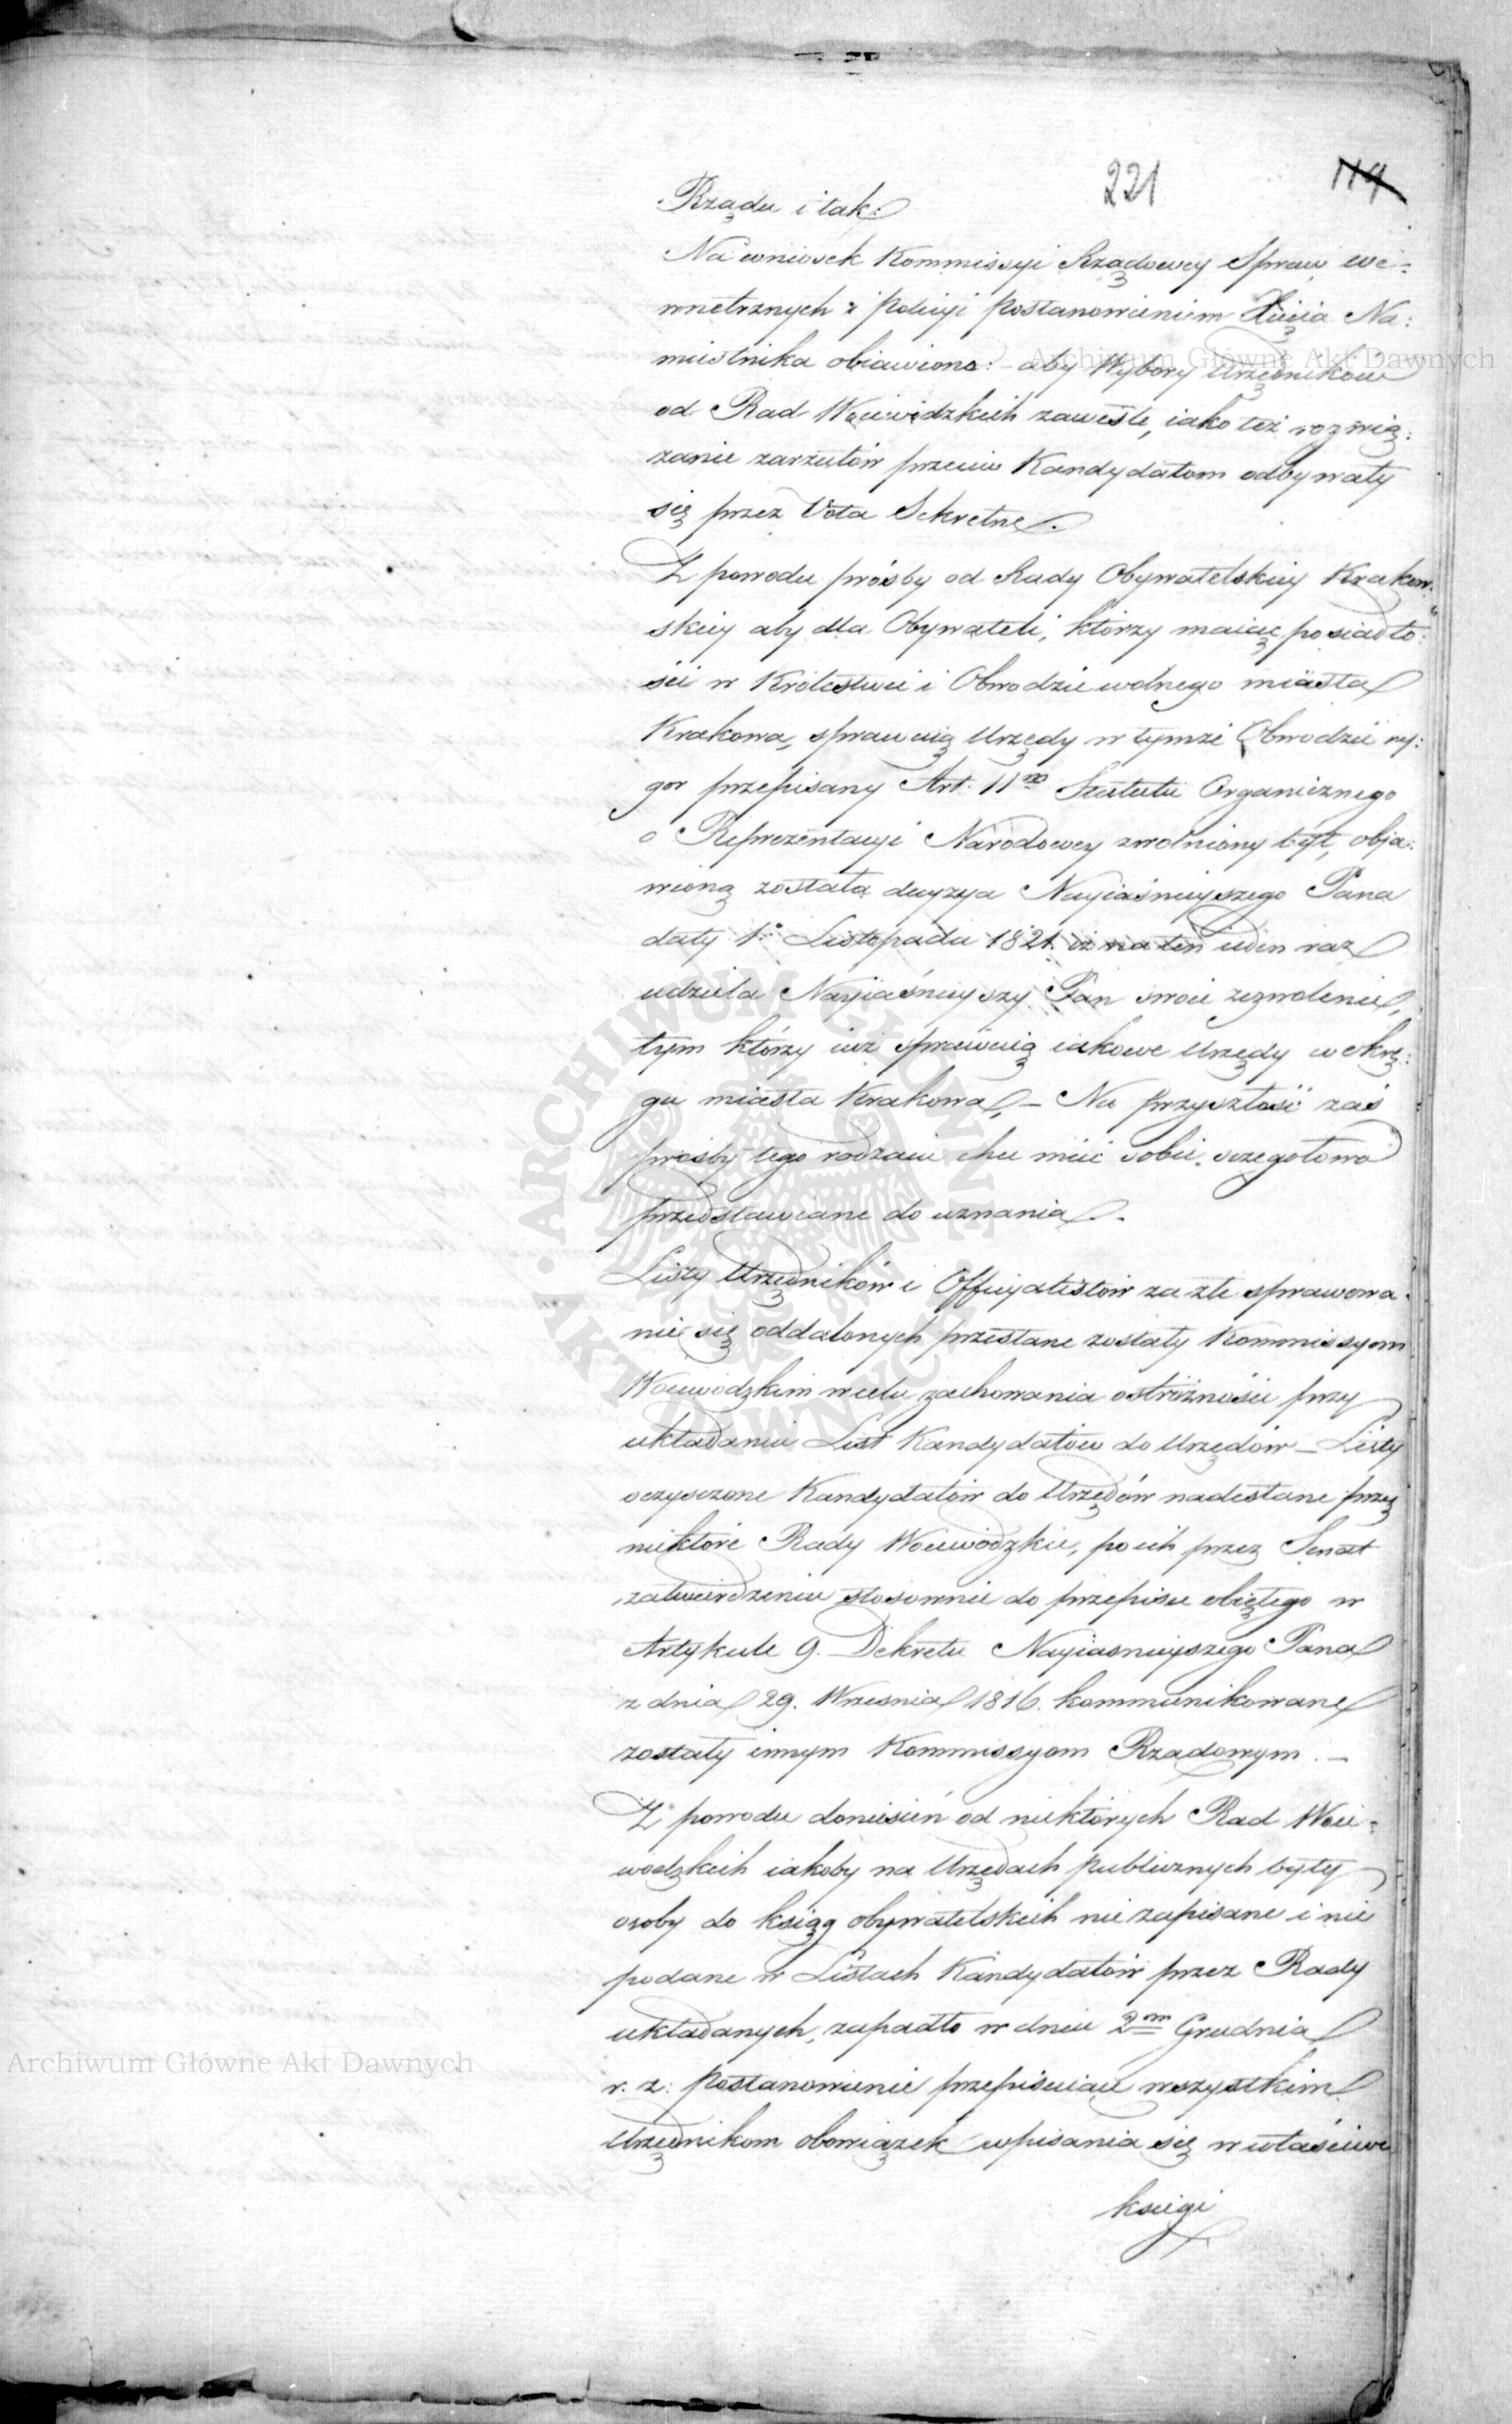 221 119
Rządu i tak:
Na wniosek Kommissyi Rządowey Spraw we-
wnetrznych i Policyi postanowieniem Xięcia Na:
miestnika obiawiono: aby Wybory Urzędników
Archiwum Główne Akt Dawnych
od Rad Woiewódzkich zawisłe, iako też rozwią:
zanie zarzutów przeciw Kandydatom odbywały
się przez Vota Sekretne.
Z powodu prośby od Rady Obywatelskiey Krakow:
skiey aby dla Obywateli, którzy maiąc posiadło:
ści w Królestwie i Obwodzie wolnego miasta
Krakowa, sprawuią Urzędy w tymże Obwodzie ry:
gor przepisany Art. 11m Statutu Organicznego
o Reprezentacyi Narodowey zwolniony był, obja:
wioną została decyzya Nayiaśnieyszego Pana
daty 1o Listopada 1821. iż na ten ieden raz
udziela Nayiaśnieyszy Pan swoie zezwolenie,
tym którzy iuż sprawuią iakowe Urzędy w okrę:
gu miasta Krakowa, – Na przyszłość zaś
prośby tego rodzaiu chce mieć sobie szczegołowo
przedstawiane do uznania.
Listy Urzędników i Officyalistów za złe sprawowa-
nie się oddalonych przesłane zostały Kommissyom
Woiewódzkim w celu zachowania ostrożności przy
układaniu List Kandydatów do Urzędów – Listy
oczyszczone Kandydatów do Urzędów nadesłane przez
niektóre Rady Woiewódzkie, po ich przez Senat
zatwierdzeniu stosownie do przepisu obiętego w
Artykule 9. Dekretu Nayiasnieyszego Pana
z dnia 29. Wrzesnia 1816. kommunikowane
zostały innym Kommissyom Rządowym. –
Z powodu doniesień od niektórych Rad Woie:
wodzkich iakoby na Urzędach publicznych były
osoby do ksiąg obywatelskich nie zapisane i nie
podane w Listach Kandydatów przez Rady
układanych, zapadło w dniu 2m Grudnia
Archiwum Główne Akt Dawnych
r. z: postanowienie przepisuiące wszystkim
Urzędnikom obowiązek wpisania się w właściwe
księgi